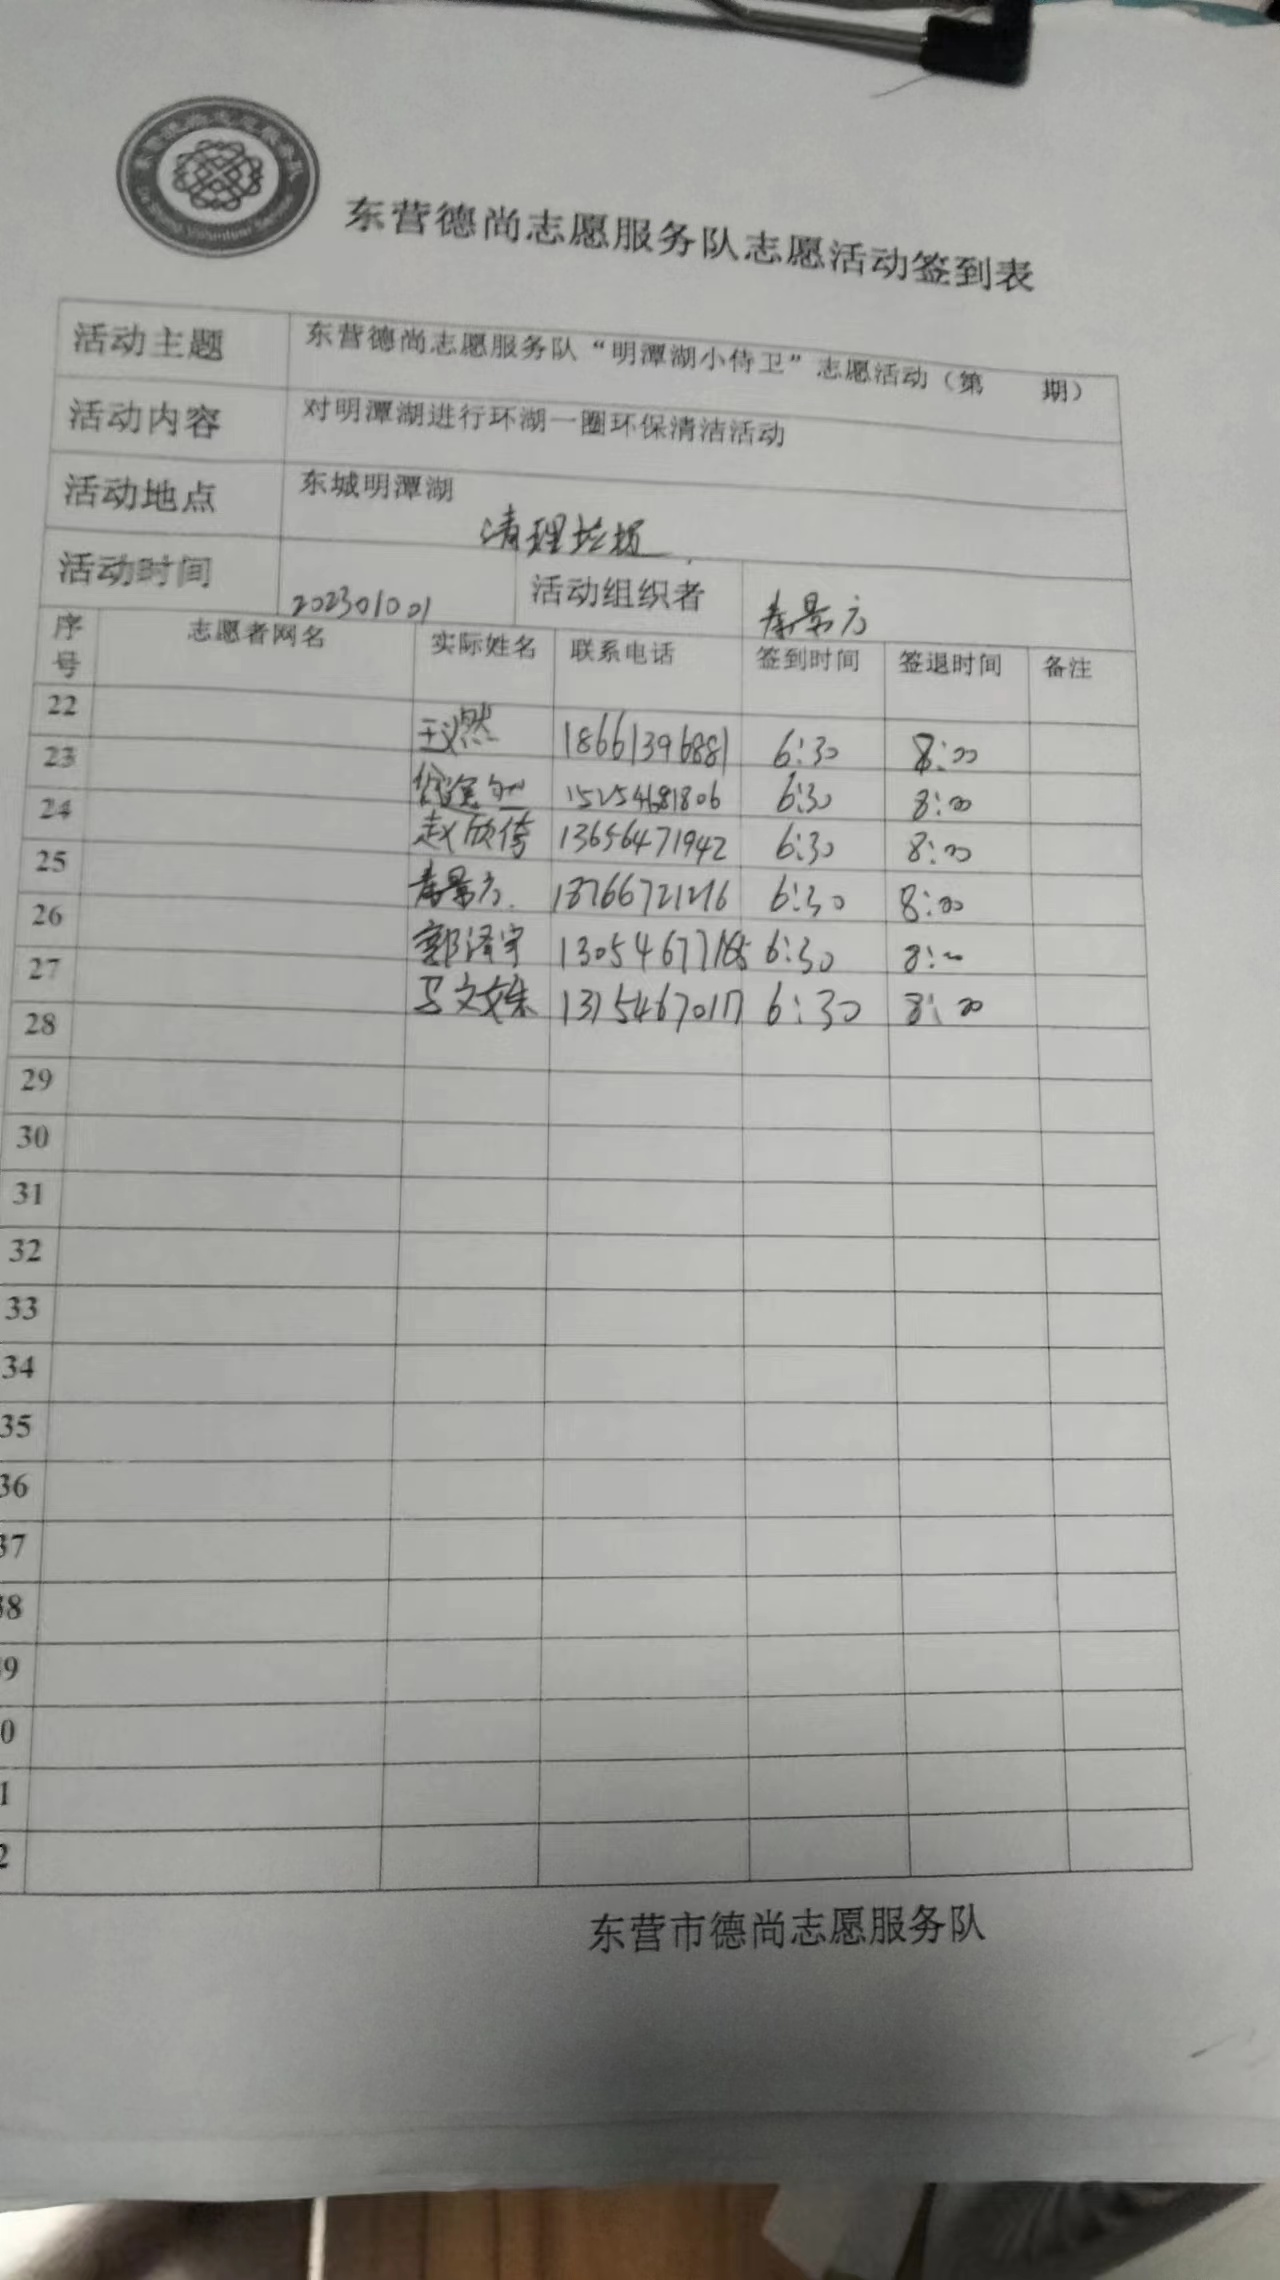 东营德尚志愿服务队志愿活动签到表
活动主题 东营德尚志愿服务队“明潭湖小侍卫”志愿活动（第 期）
活动内容 对明潭湖进行环湖一圈环保清洁活动
活动地点 东城明潭湖
清理垃圾
活动时间 202301001 活动组织者 秦景方
序号 志愿者网名 实际姓名 联系电话 签到时间 签退时间 备注
22 王义燃 18661396881 6:30 8:00
23 15254681806 6:30 8:00
24 赵欣倚 13656471942 6:30 8:00
25 秦景方 18766721276 6:30 8:00
26 郭泽宇 6:30
27 马文姝 6:30 8:00
28
29
30
31
32
33
34
35
36
37
38
39
0
1
2
东营市德尚志愿服务队